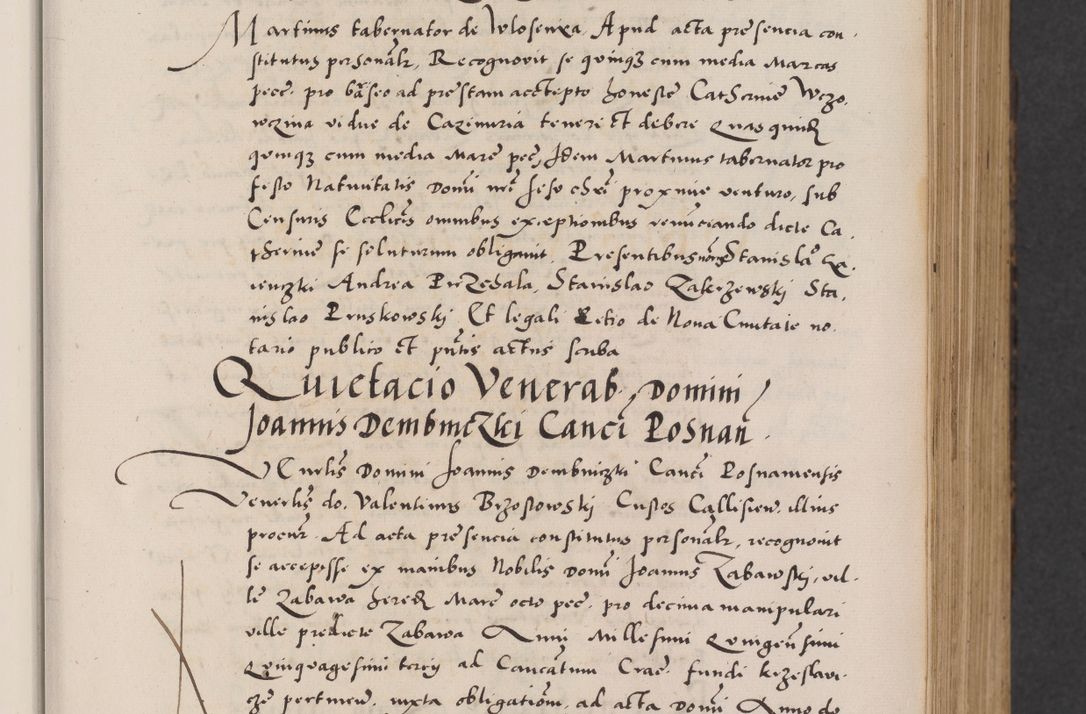 Martinus tabernator de Wlosenxa, Apud acta presencia con-
stitutus personalr, Recognovit se quinqz cum media Marcas
pece. pro baseo ad prestam acctepto honeste Catherine Wczo-
wczina vidue de Cazimiria tenere et debere Quas quidz
quinqz cum media Marc pec, Idem Martinus tabernator pro
festo Nativitatis Domi nri Jesv chri proxime venturo, sub
Censuris Ecclicis omnibus exceptionibus renunciando dicte Ca-
therine se soluturum obligavit, Presentibus Stanislao
Andrea Przedala, Stanislao Zakrzewski Sta-
nislao Pruskowski Et legali Petro de Nova Civitate no-
tario publico et pntis actus scriba
Quietacio Venerab. Domini
Joannis Dembinczki Canci Posnan.
Venerlis Domini Joannis Dembinczki Canci Posnaniensis
Venerlis do. Valentinus Brzostowski Custos Callisien. illius
procur. Ad acta presencia constitutus personalr, recognovit
se accepisse ex manibus Nobilis Domi Joannis Zabawski, vil-
le Zabawa hered Marc octo pec. pro decima manipulari
ville predicte Zabawa Anni Millesimi Quingensimi
Quinquagesimi tercij ad Cantum Crac. fundi krzeslavi-
cze pertinen. iuxta obligationem, ad acta Domi Anno do